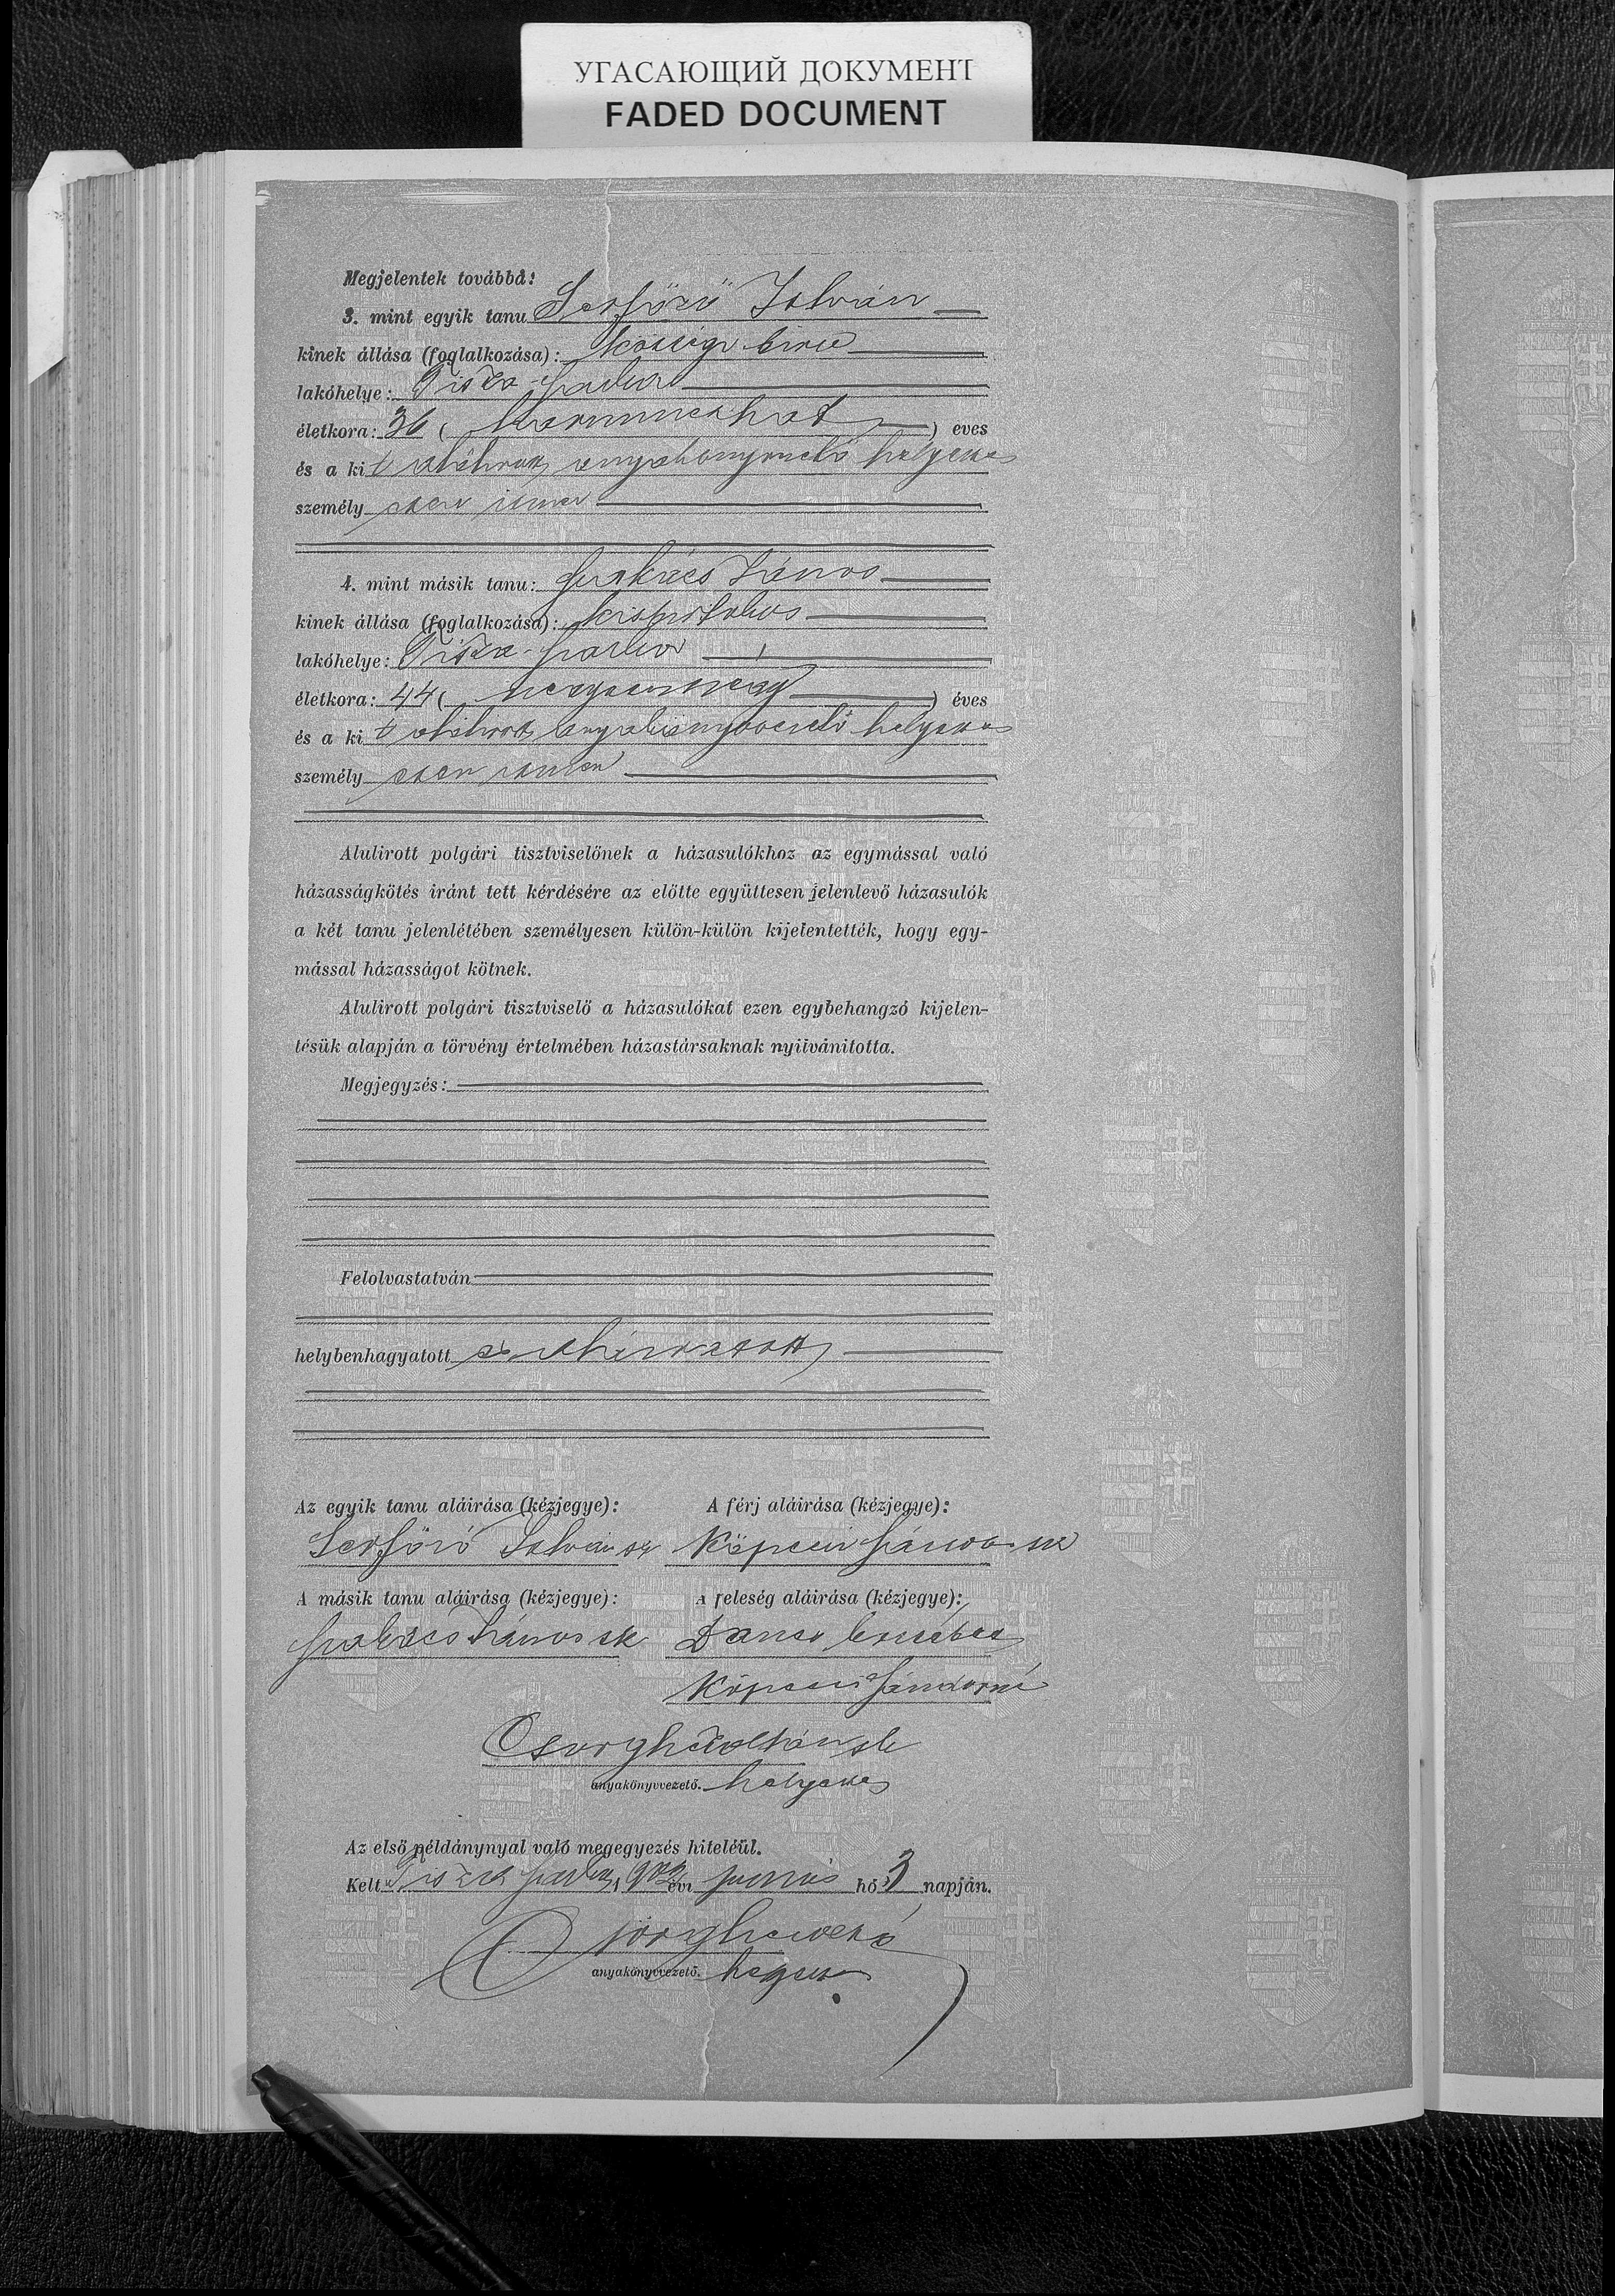 УГАСАЮЩИЙ ДОКУМЕНТ
FADED DOCUMENT
Megjelentek továbbá:
3. mint egyik tanu Serfőző István
kinek állása (foglalkozása): községi biró
lakóhelye: Tisza
életkora: 36 ( harminczhat ) eves
és a ki t alólirott anyakönyvvezető helyettes
személy esen ismer
4. mint másik tanu: Szakács János
kinek állása (foglalkozása): kisbirtokos
lakóhelye: Tisza
életkora: 44 ( negyvennégy ) éves
és a ki t alólirott anyakönyvvezető helyettes
személy esen ismer
Alulirott polgári tisztviselőnek a házasulókhoz az egymással való
házasságkötés iránt tett kérdésére az előtte együttesen jelenlevő házasulók
a két tanu jelenlétében személyesen külön-külön kijelentették, hogy egy-
mással házasságot kötnek.
Alulirott polgári tisztviselő a házasulókat ezen egybehangzó kijelen-
tésük alapján a törvény értelmében házastársaknak nyilvánitotta.
Megjegyzés:
Felolvastatván
helybenhagyatott és aláiratott
Az egyik tanu aláirása (kézjegye): A férj aláirása (kézjegye):
Serfőző István sk
A másik tanu aláirása (kézjegye): A feleség aláirása (kézjegye):
Szakács János sk Erzsébet
Sándorné
Zoltán sk
anyakönyvvezető. helyettes
Az első példánynyal való megegyezés hiteléül.
Kelt Tisza 190 évi junius hó 3 napján.
anyakönyvvezető. helyettes